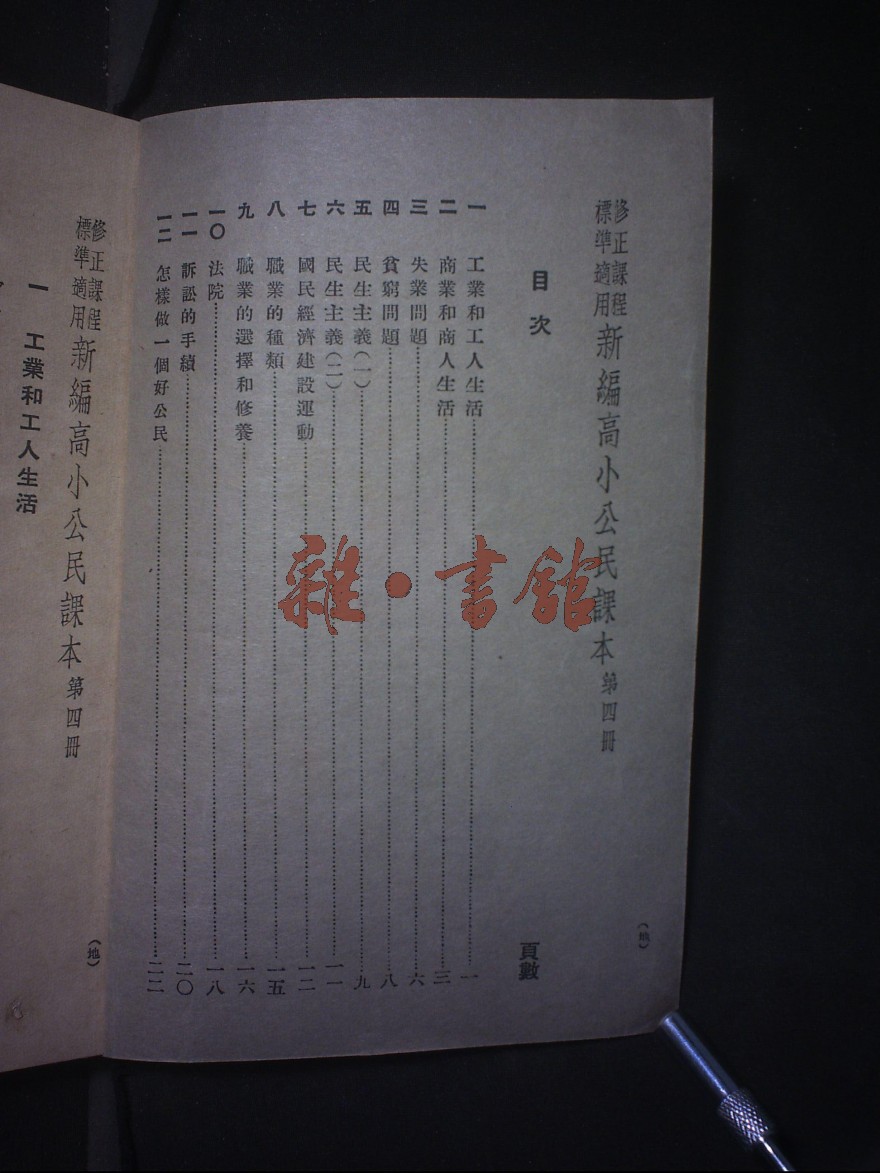 修正課程標準適用 新編高小公民課本 第四冊
(地)
目次
頁數
一 工業和工人生活 一
二 商業和商人生活 三
三 失業問題 六
四 貧窮問題 八
五 民生主義(一) 九
六 民生主義(二) 一一
七 國民經濟建設運動 一二
八 職業的種類 一五
九 職業的選擇和修養 一六
一〇 法院 一八
一一 訴訟的手續 二〇
一二 怎樣做一個好公民 二二
修正課程標準適用 新編高小公民課本 第四冊
(地)
一 工業和工人生活
雜·書館